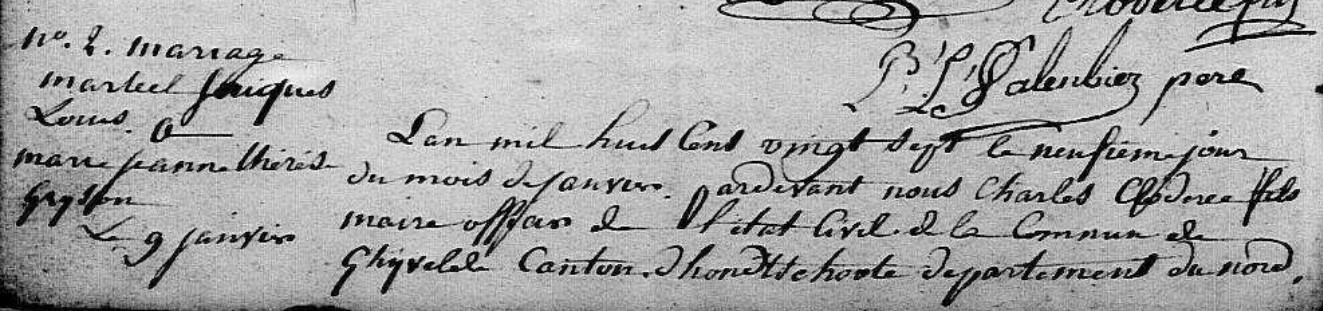 P. L. Salenbiez pere
n°. 2. mariage
marteel Jaiques
Louis. &
marie jeanne thérès
Gryson
Le 9 janvier
L'an mil huit Cent vingt sept le neufieme jour
du mois de janvier. Pardevant nous Charles fils
maire officier de l'état Civil de la Commune de
Ghyvelde Canton d'hondtschoote departement du nord,